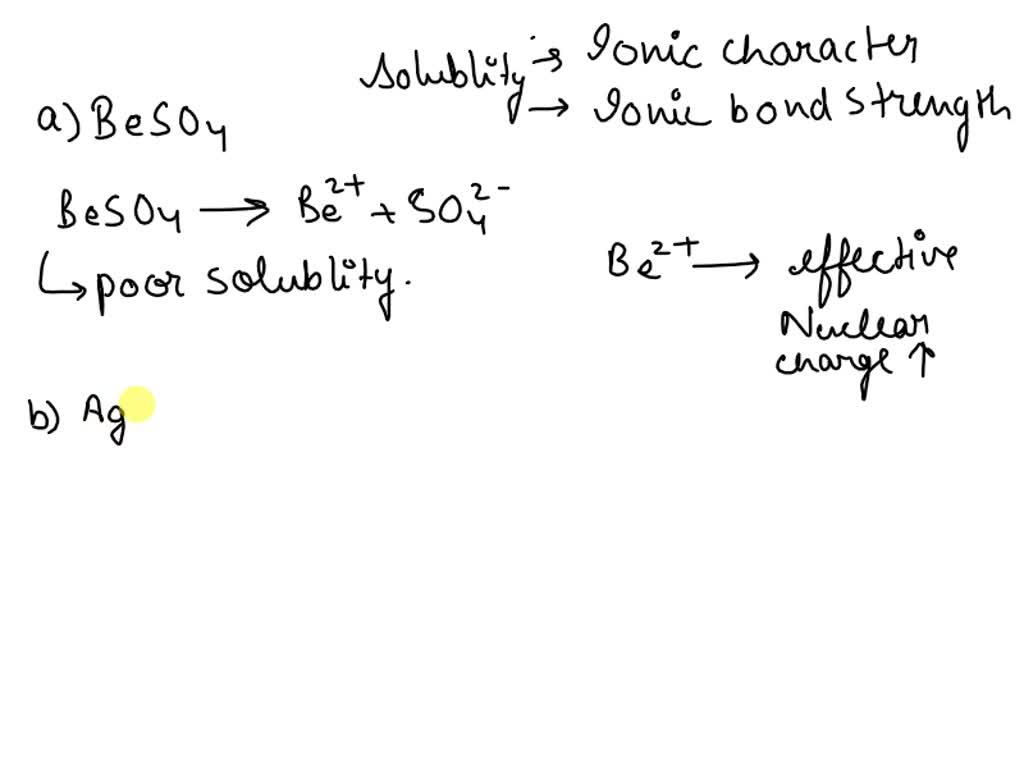 Solublity → Ionic character
→ Ionic bond strength
a) BeSO4
BeSO4 → Be2+ + SO4 2-
↳ poor solublity.
Be2+ → effective
Nuclear
charge ↑
b) Ag